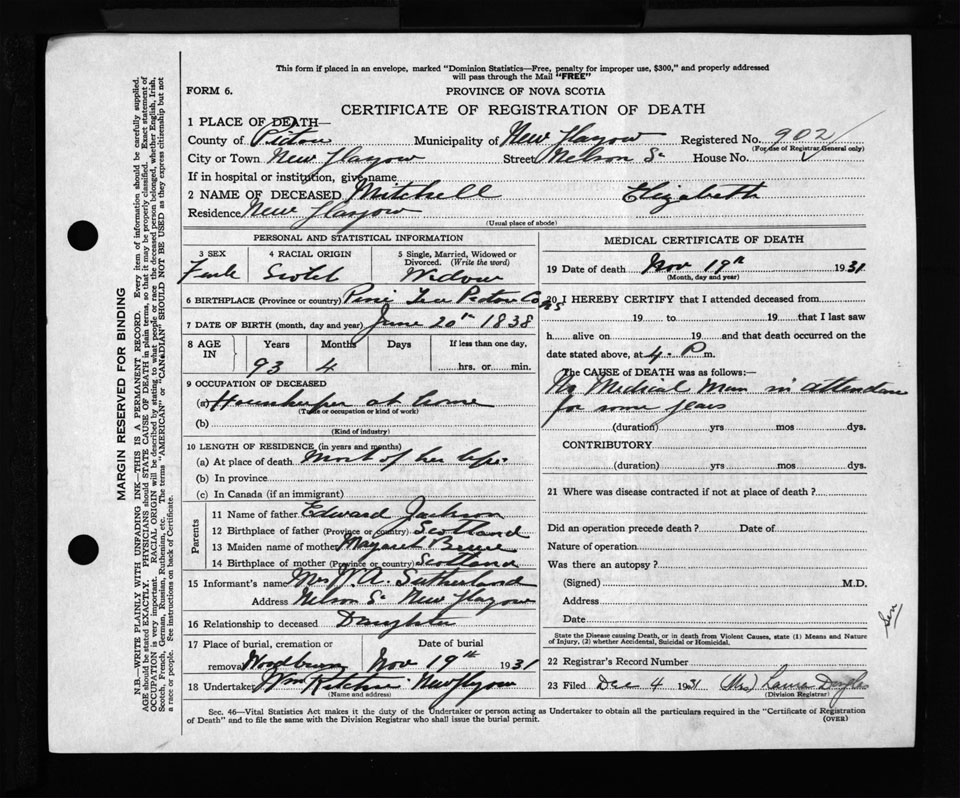 This form if placed in an envelope, marked "Dominion Statistics—Free, penalty for improper use, $300," and properly addressed
will pass through the Mail "FREE"
FORM 6.
PROVINCE OF NOVA SCOTIA
CERTIFICATE OF REGISTRATION OF DEATH
1 PLACE OF DEATH—
County of Pictou Municipality of New Glasgow Registered No. 902
(For use of Registrar General only)
City or Town New Glasgow Street Nelson St House No.
If in hospital or institution, give name
2 NAME OF DECEASED Mitchell Elizabeth
Residence New Glasgow
(Usual place of abode)
PERSONAL AND STATISTICAL INFORMATION
3 SEX 4 RACIAL ORIGIN 5 Single, Married, Widowed or
Divorced. (Write the word)
Female Scotch Widow
6 BIRTHPLACE (Province or country) Pine Tree Pictou Co NS
7 DATE OF BIRTH (month, day and year) June 20th 1838
8 AGE IN Years Months Days If less than one day,
93 4 hrs. or min.
9 OCCUPATION OF DECEASED
(a) Housekeeper at home
(Trade or occupation or kind of work)
(b)
(Kind of industry)
10 LENGTH OF RESIDENCE (in years and months)
(a) At place of death Most of her life.
(b) In province
(c) In Canada (if an immigrant)
Parents
11 Name of father Edward Jackson
12 Birthplace of father (Province or country) Scotland
13 Maiden name of mother Margaret
14 Birthplace of mother (Province or country) Scotland
15 Informant's name Mrs W. A. Sutherland
Address Nelson St New Glasgow
16 Relationship to deceased Daughter
17 Place of burial, cremation or Date of burial
removal Nov 19th 1931
18 Undertaker Wm New Glasgow
(Name and address)
MEDICAL CERTIFICATE OF DEATH
19 Date of death Nov 19th 1931
(Month, day and year)
20 I HEREBY CERTIFY that I attended deceased from
19 to 19 that I last saw
h alive on 19 and that death occurred on the
date stated above, at 4- P m.
The CAUSE of DEATH was as follows:—
No Medical Man in attendance
for some years
(duration) yrs mos dys.
CONTRIBUTORY
(duration) yrs mos dys.
21 Where was disease contracted if not at place of death?
Did an operation precede death? Date of
Nature of operation
Was there an autopsy?
(Signed) M.D.
Address
Date
State the Disease causing Death, or in death from Violent Causes, state (1) Means and Nature
of Injury, (2) whether Accidental, Suicidal or Homicidal.
22 Registrar's Record Number
23 Filed Dec 4 1931 (Mrs) Laura Douglas
(Division Registrar)
Sec. 46—Vital Statistics Act makes it the duty of the Undertaker or person acting as Undertaker to obtain all the particulars required in the "Certificate of Registration
of Death" and to file the same with the Division Registrar who shall issue the burial permit.
(OVER)
MARGIN RESERVED FOR BINDING
N.B.—WRITE PLAINLY WITH UNFADING INK—THIS IS A PERMANENT RECORD. Every item of information should be carefully supplied.
AGE should be stated EXACTLY. PHYSICIANS should STATE CAUSE OF DEATH in plain terms, so that it may be properly classified. Exact statement of
OCCUPATION is very important. RACIAL ORIGIN will be described by stating to what people or race the deceased person belonged, whether English, Irish,
Scotch, French, German, Russian, Ruthenian, etc. The terms "AMERICAN" or "CANADIAN" SHOULD NOT BE USED as they express citizenship but not
a race or people. See instructions on back of Certificate.